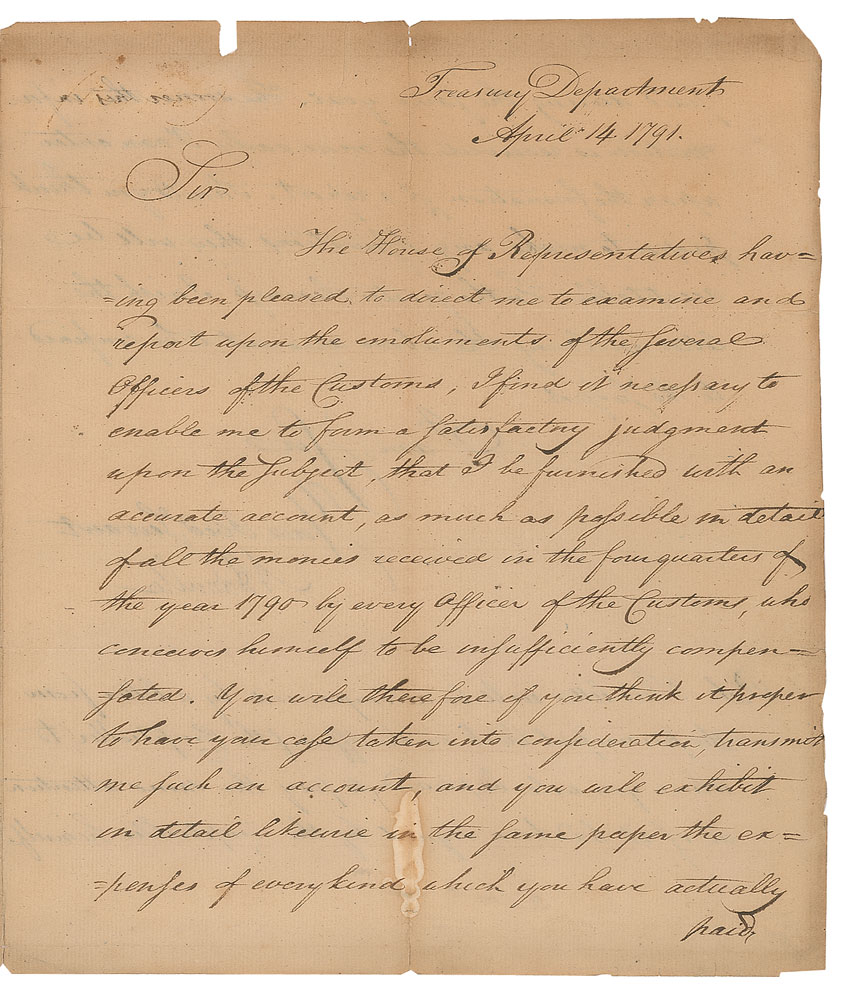 Treasury Department
April 14 1791.
Sir
The House of Representatives hav=
=ing been pleased to direct me to examine and
report upon the emoluments of the several
Officers of the Customs, I find it necessary to
enable me to form a satisfactory judgment
upon the subject, that I be furnished with an
accurate account, as much as possible in detail
of all the monies received in the four quarters of
the year 1790 by every Officer of the Customs, who
conceives himself to be insufficiently compen=
=sated. You will therefore if you think it proper
to have your case taken into consideration, transmit
me such an account, and you will exhibit
in detail likewise in the same paper the ex=
=penses of every kind which you have actually
paid,